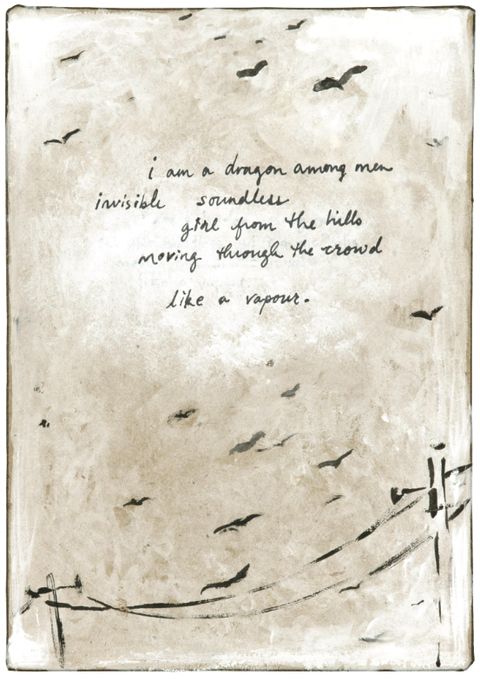 i am a dragon among men
invisible soundless
girl from the hills
moving through the crowd
like a vapour.